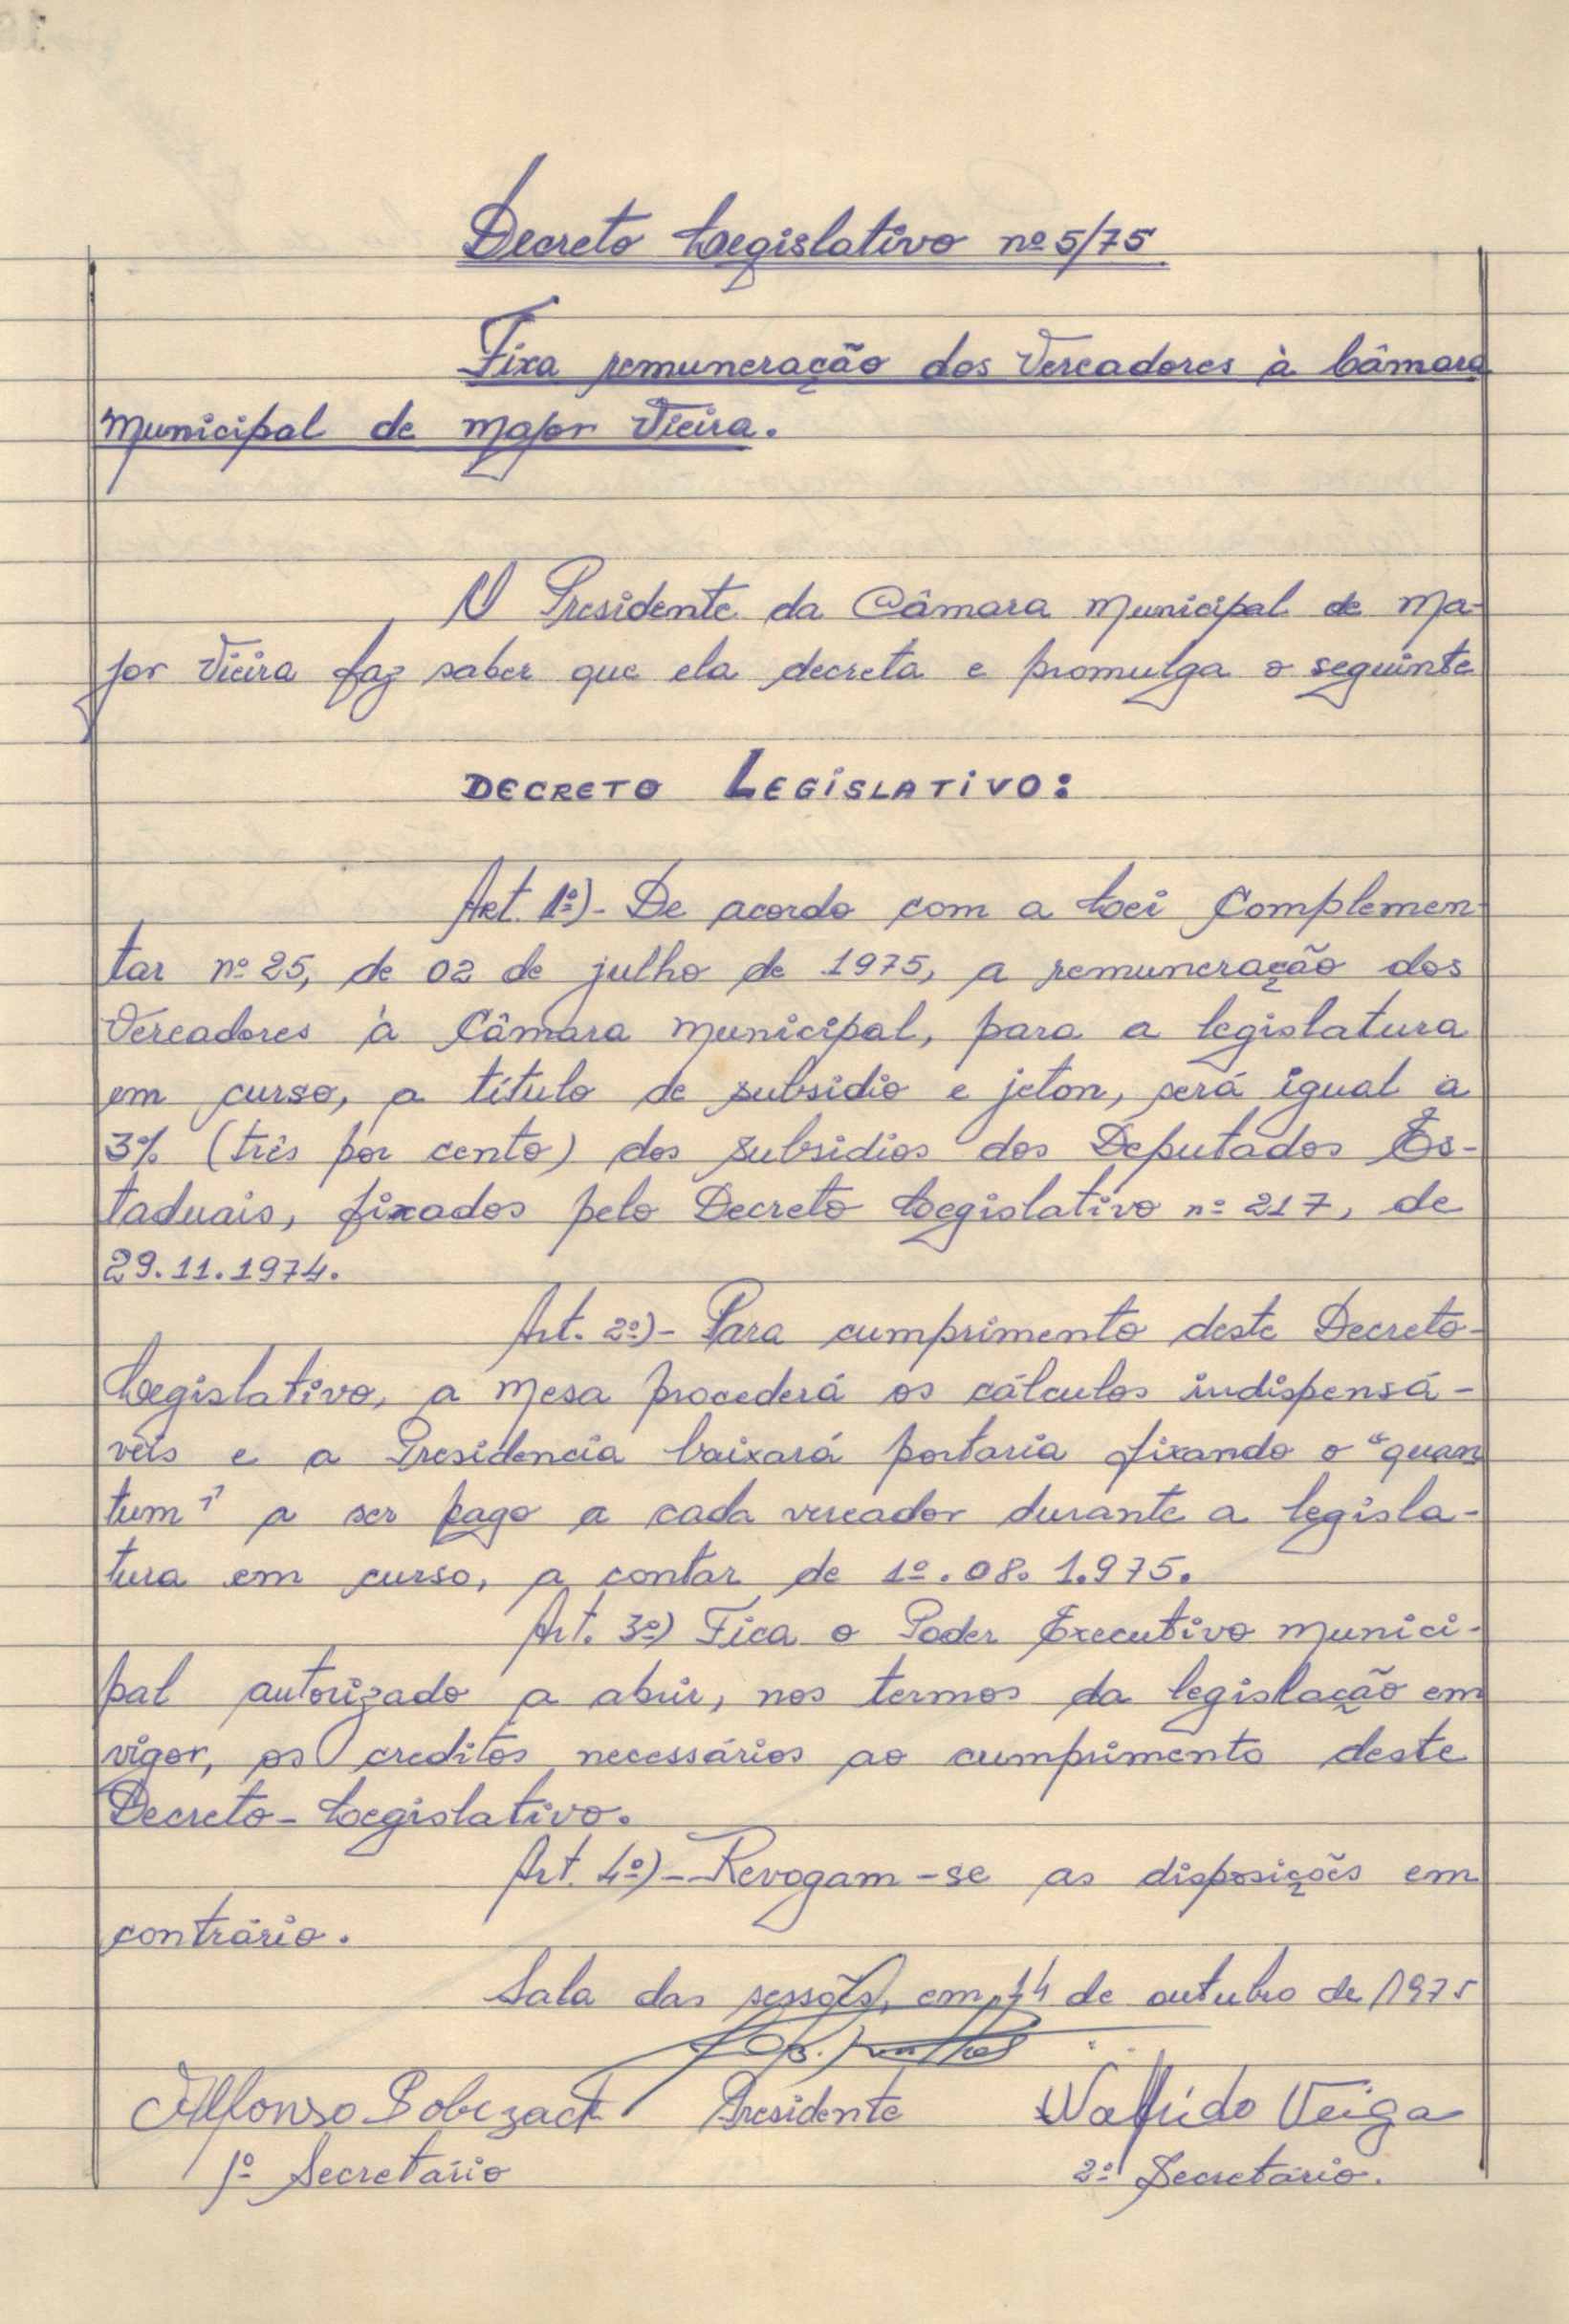 Decreto Legislativo nº 5/75.
Fixa remuneração dos Vereadores à Câmara
Municipal de Major Vieira.
O Presidente da Câmara Municipal de Ma-
jor Vieira faz saber que ela decreta e promulga o seguinte
DECRETO LEGISLATIVO:
Art. 1º)- De acordo com a Lei Complemen-
tar nº 25, de 02 de julho de 1975, a remuneração dos
Vereadores à Câmara Municipal, para a legislatura
em curso, a título de subsidio e jeton, será igual a
3% (três por cento) dos subsidios dos Deputados Es-
taduais, fixados pelo Decreto Legislativo nº 217, de
29.11.1974.
Art. 2º)- Para cumprimento deste Decreto-
Legislativo, a Mesa procederá os cálculos indispensá-
veis e a Presidencia baixará portaria fixando o "quan
tum" a ser pago a cada vereador durante a legisla-
tura em curso, a contar de 1º.08.1.975.
Art. 3º) Fica o Poder Executivo Munici-
pal autorizado a abrir, nos termos da legislação em
vigor, os creditos necessários ao cumprimento deste
Decreto-Legislativo.
Art. 4º)- Revogam-se as disposições em
contrário.
Sala das sessões, em 14 de outubro de 1975
Alfonso Presidente Walfrido Veiga
1º Secretário 2º Secretário.